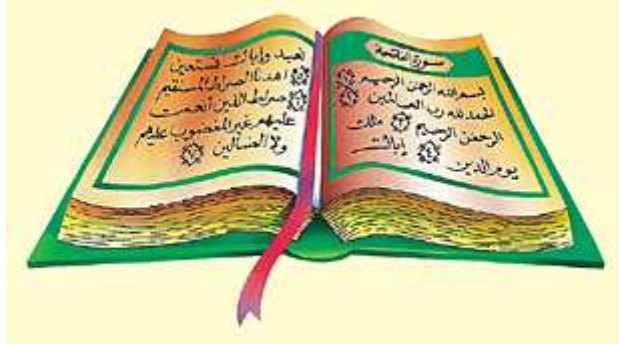 سورة الفاتحة
بسم الله الرحمن الرحيم ١
الحمد لله رب العالمين ٢
الرحمن الرحيم ٣ ملك
يوم الدين ٤ إياك
نعبد وإياك نستعين
٥ اهدنا الصراط المستقيم
٦ صراط الذين أنعمت
عليهم غير المغضوب عليهم
ولا الضالين ٧